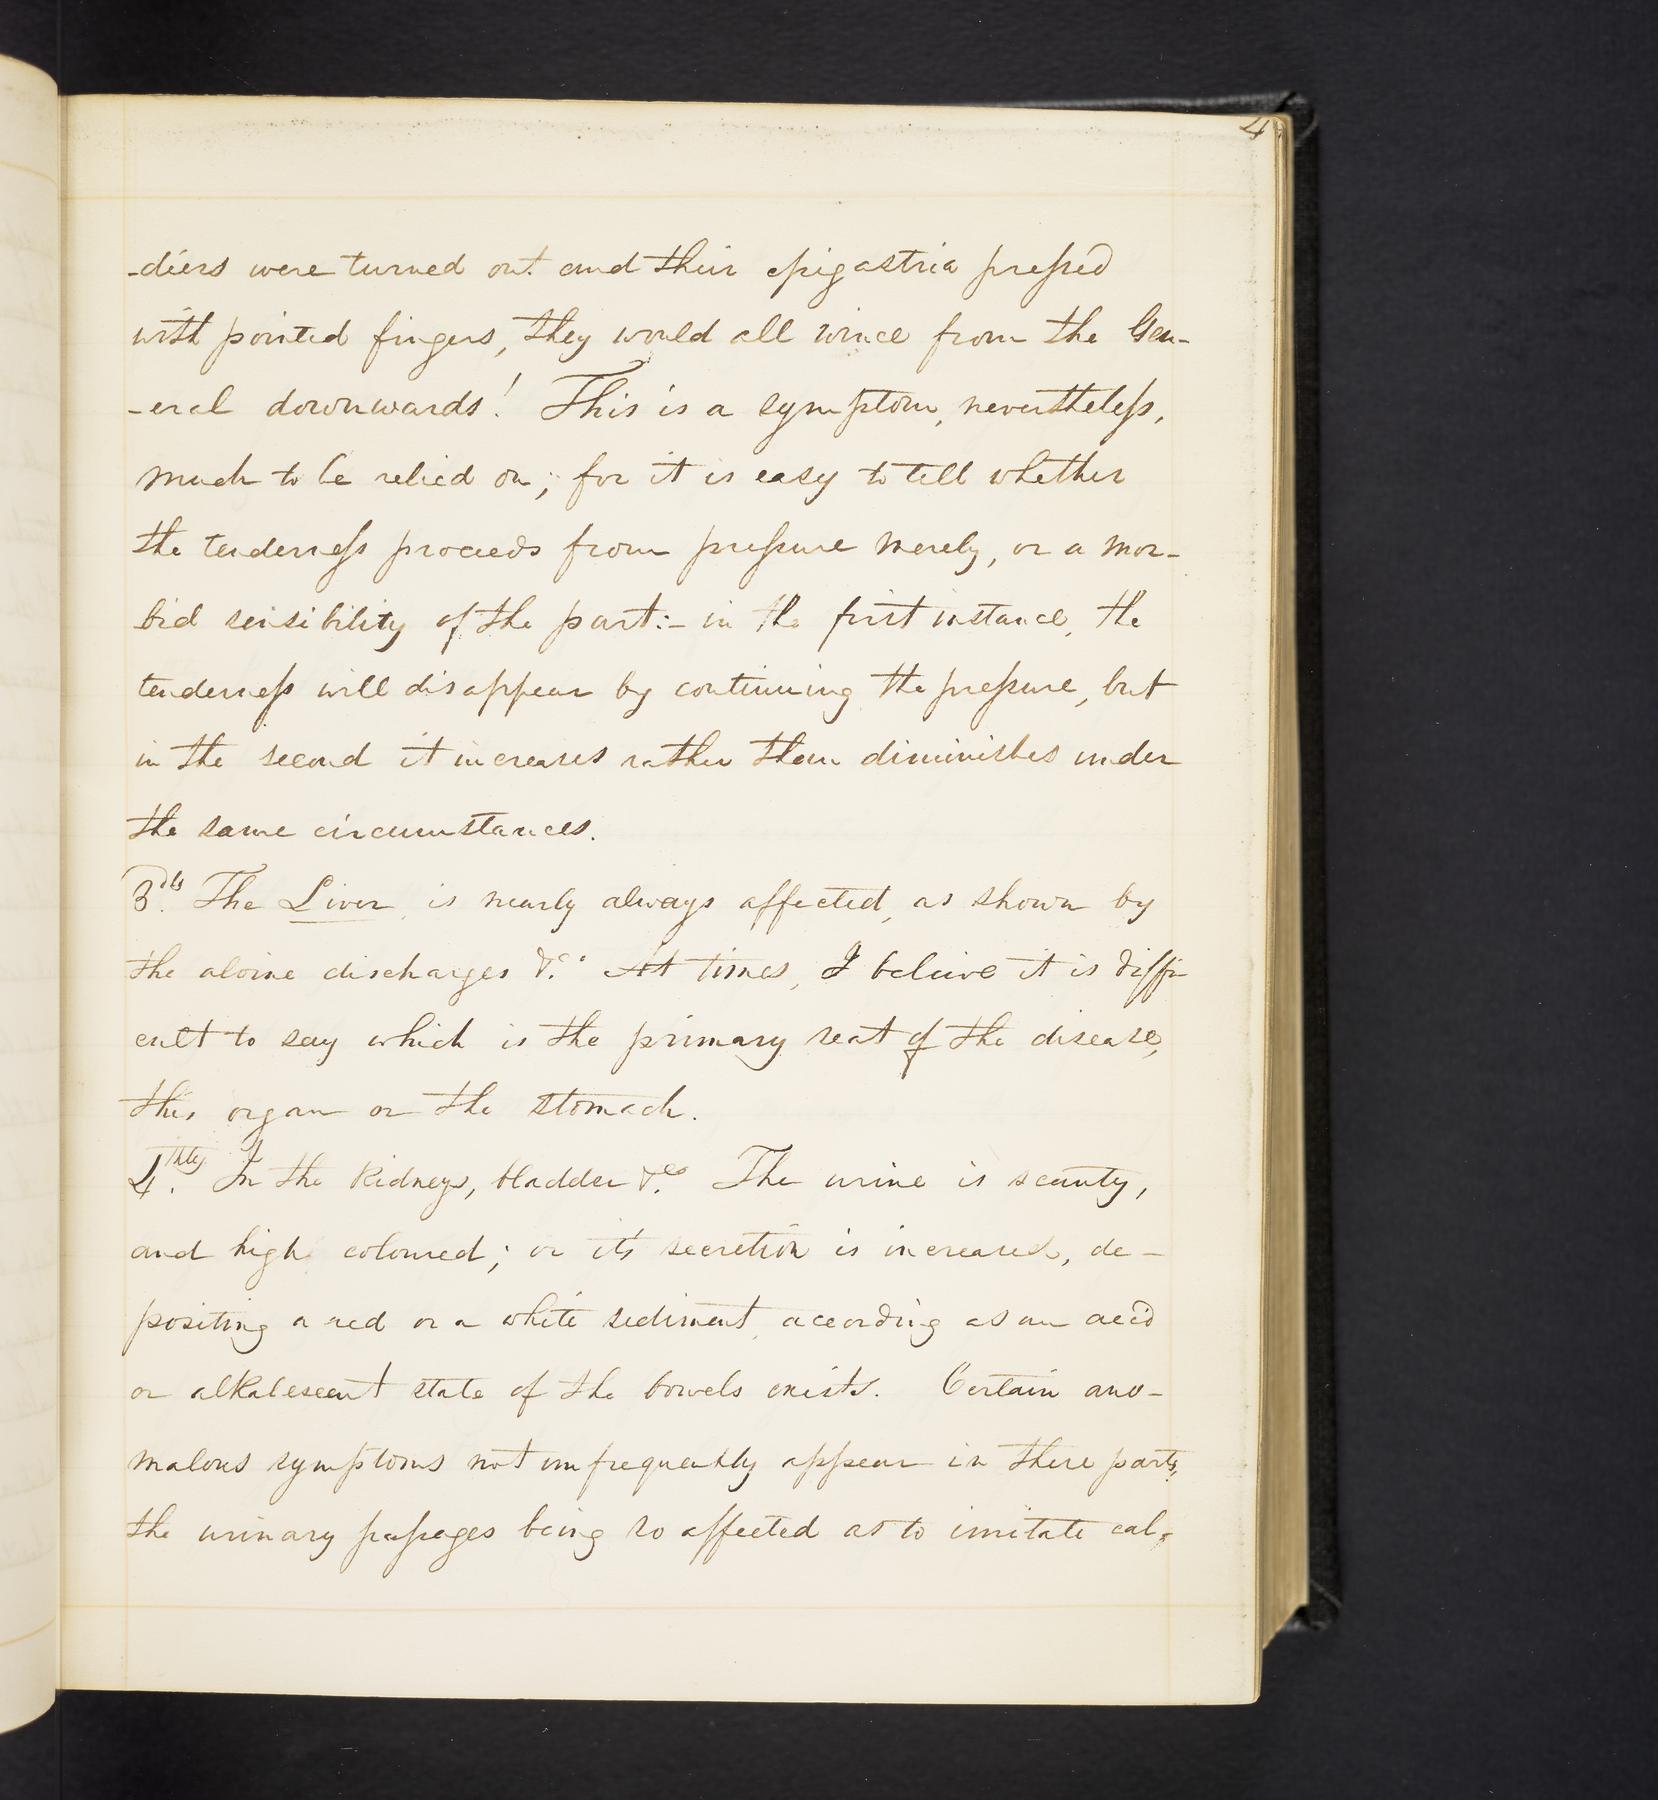 4
-diers were turned out and their epigastria preſsed
with pointed fingers, they would all wince from the Gen-
-eral downwards! This is a symptom, nevertheleſs,
much to be relied on; for it is easy to tell whether
the tenderneſs proceeds from preſsure merely, or a mor-
bid sensibility of the part:- in the first instance, the
tenderneſs will disappear by continuing the preſsure, but
in the second it increases rather than diminishes under
the same circumstances.
3dly. The Liver, is nearly always affected, as shown by
the alvine discharges &c. At times, I beleive it is diffi
cult to say which is the primary seat of the disease,
this organ or the stomach.
4thly. In the Kidneys, bladder &c. The urine is scanty,
and high coloured; or it's secretion is increased, de-
positing a red or a white sediment, according as an acid
or alkalescent state of the bowels exists. Certain ano-
malous symptoms not unfrequently appear in these parts,
the urinary paſsages being so affected as to imitate cal-